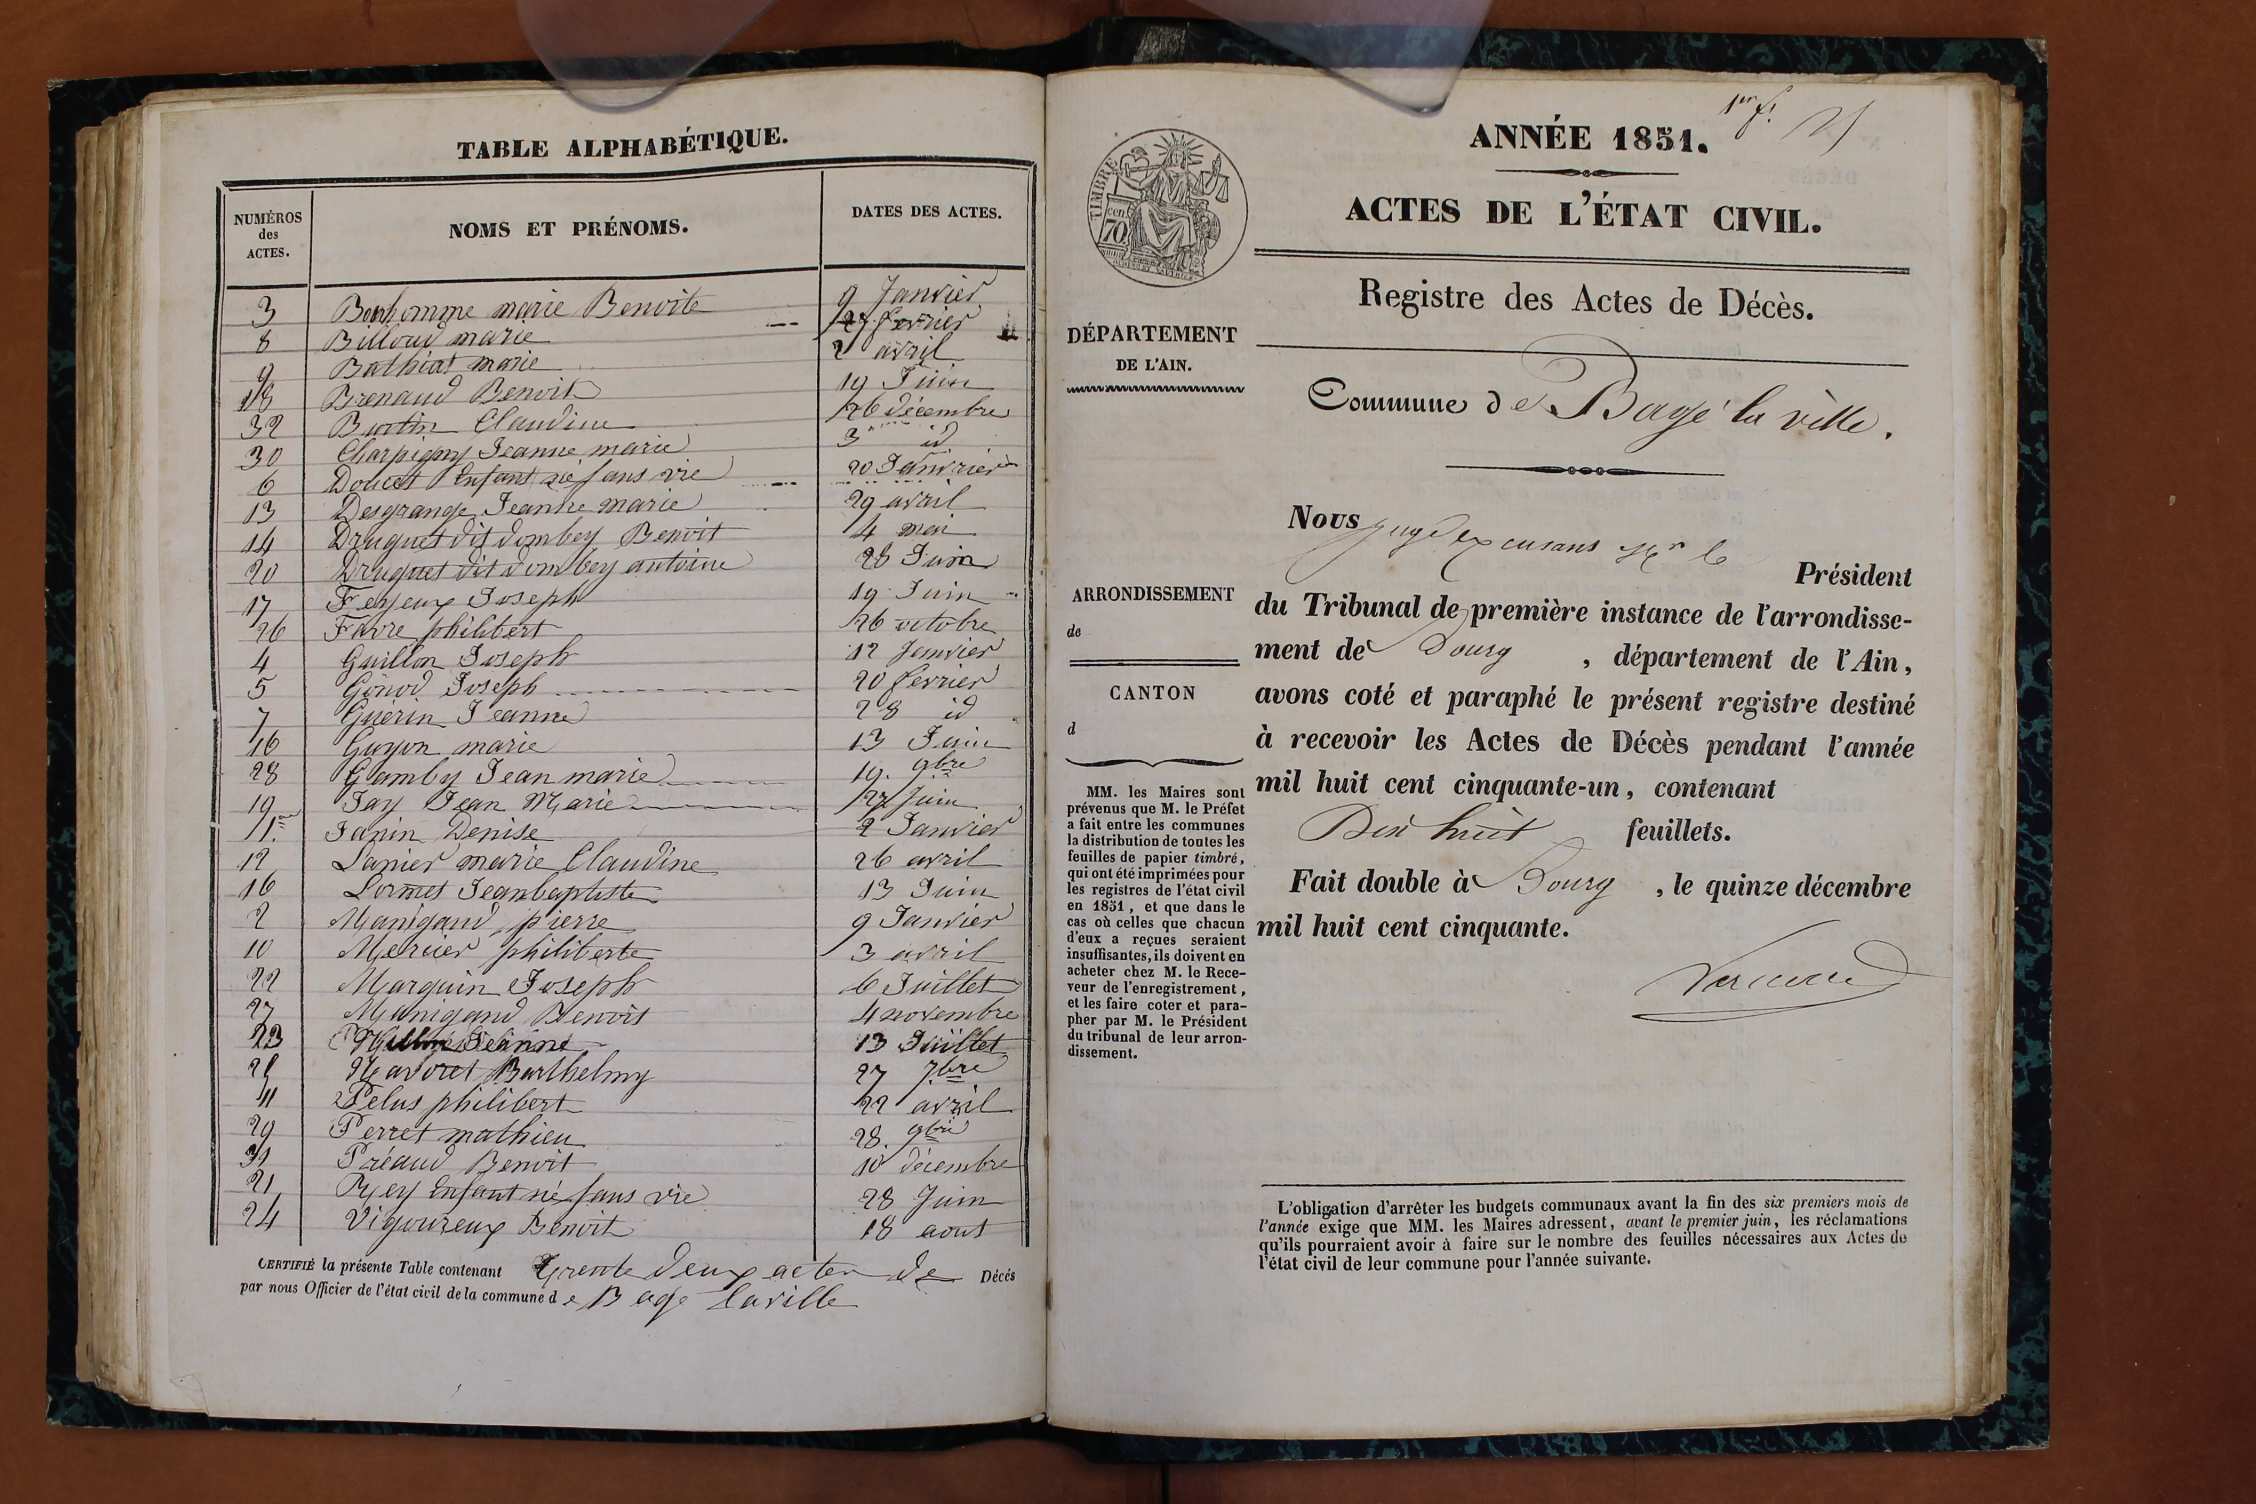 TABLE ALPHABÉTIQUE.
NUMÉROS des ACTES.
NOMS ET PRÉNOMS.
DATES DES ACTES.
3 Bonhomme marie Benoite 9 Janvier
8 Billoud marie 27 fevrier
9 Bathiat marie 2 avril
18 Brenaud Benoit 19 Juin
32 Burtin Claudine 26 décembre
30 Charpigny Jeanne marie 3 id
6 Doucet Enfant né sans vie 20 Janvrier
13 Desgrange Jeanne marie 29 avril
14 Druguet dit dombey Benoit 4 mai
20 Druguet dit dombey antoine 28 Juin
17 Feyeux Joseph 19 Juin
26 Favre philibert 26 octobre
4 Guillon Joseph 12 Janvier
5 Génod Joseph 20 fevrier
7 Guérin Jeanne 28 id
16 Guyon marie 13 Juin
28 Gamby Jean marie 19. 9bre
19 Jay Jean Marie 27 Juin
1er Janin Denise 2 Janvier
12 Lanier marie Claudine 26 avril
16 Lornet Jeanbaptiste 13 Juin
2 Manigand pierre 9 Janvier
10 Mercier philiberte 3 avril
22 Marguin Joseph 6 Juillet
27 Manigand Benoit 4 novembre
23 Jeanne 13 Juillet
25 Navoret Barthelmy 27 7bre
11 Pelus philibert 22 avril
29 Perret mathieu 28. 9bre
31 Préaud Benoit 10 décembre
21 Rey Enfant né sans vie 28 Juin
24 Vigoureux Benoit 18 aout
CERTIFIÉ la présente Table contenant Trente deux actes de Décés
par nous Officier de l'état civil de la commune d e Bagé laville
1er f.
ANNÉE 1851.
ACTES DE L'ÉTAT CIVIL.
Registre des Actes de Décès.
TIMBRE
70
DÉPARTEMENT
DE L'AIN.
Commune de Bagé la ville.
ARRONDISSEMENT
de
CANTON
d
MM. les Maires sont
prévenus que M. le Préfet
a fait entre les communes
la distribution de toutes les
feuilles de papier timbré,
qui ont été imprimées pour
les registres de l'état civil
en 1851, et que dans le
cas où celles que chacun
d'eux a reçues seraient
insuffisantes, ils doivent en
acheter chez M. le Rece-
veur de l'enregistrement,
et les faire coter et para-
pher par M. le Président
du tribunal de leur arron-
dissement.
Nous Juge Mr le
Président
du Tribunal de première instance de l'arrondisse-
ment de Bourg , département de l'Ain,
avons coté et paraphé le présent registre destiné
à recevoir les Actes de Décès pendant l'année
mil huit cent cinquante-un, contenant
Dix huit feuillets.
Fait double à Bourg , le quinze décembre
mil huit cent cinquante.
L'obligation d'arrêter les budgets communaux avant la fin des six premiers mois de
l'année exige que MM. les Maires adressent, avant le premier juin, les réclamations
qu'ils pourraient avoir à faire sur le nombre des feuilles nécessaires aux Actes de
l'état civil de leur commune pour l'année suivante.